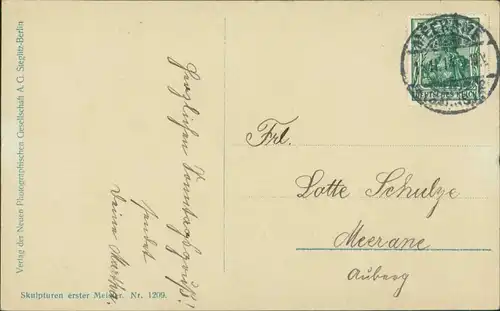 Verlag der Neuen Photographischen Gesellschaft A. G. Steglitz-Berlin
Herzlichen Sonntagsgruß!
sendet
Deine Martha.
Skulpturen erster Meister. Nr. 1209.
MEERANE
Frl.
Lotte Schulze
Meerane
Auberg